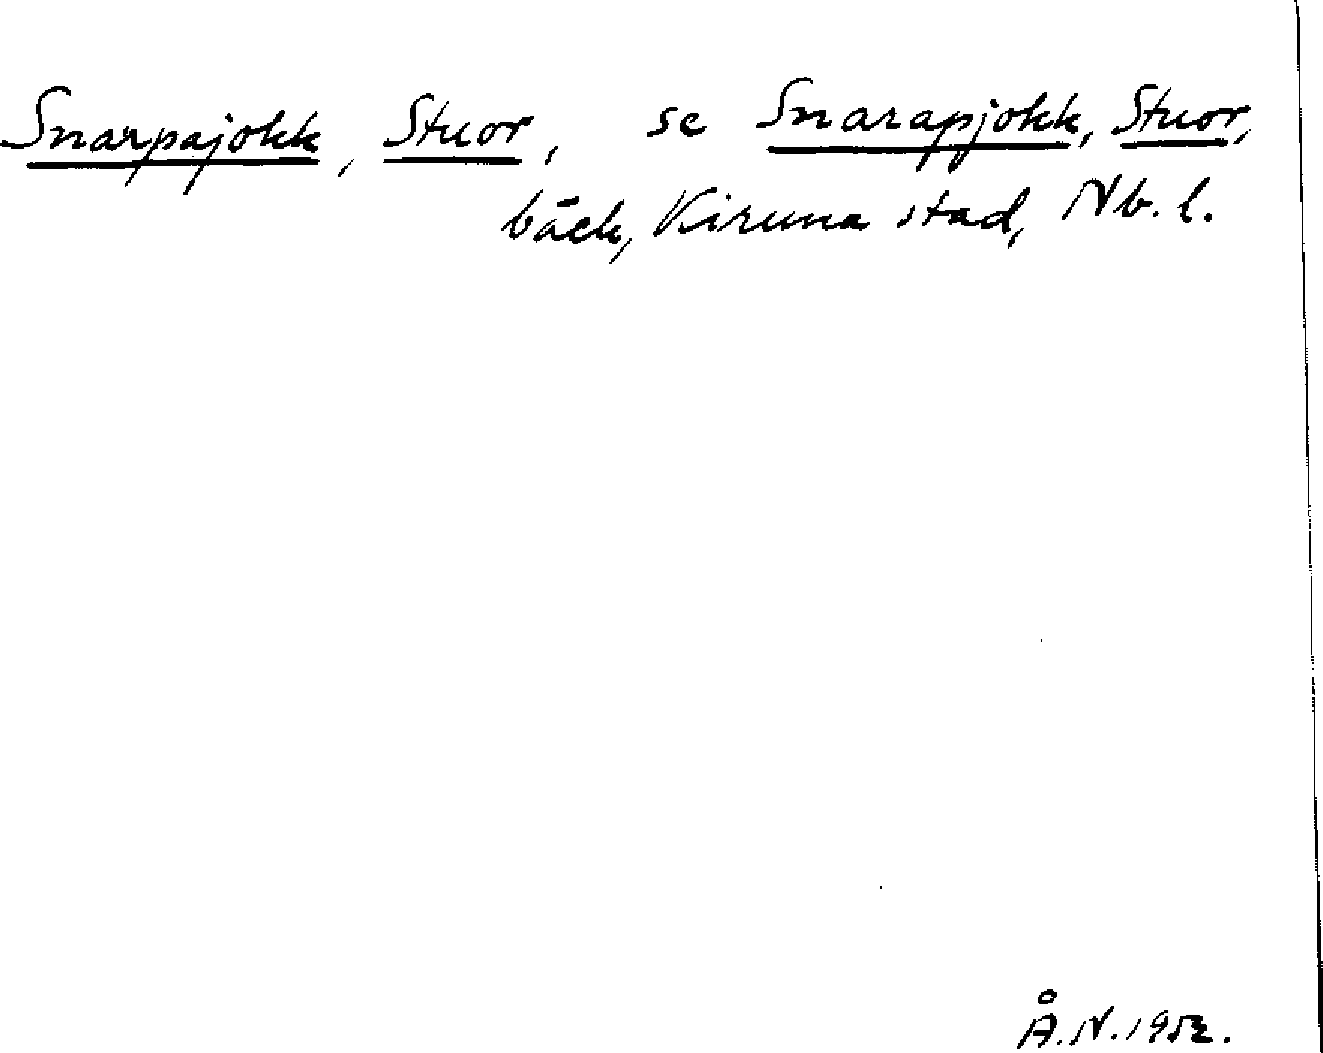 Snarpajokk, Stuor, se Snarapjokk, Stuor,
bäck, Kiruna stad, Nb. l.
Å.N. 1952.